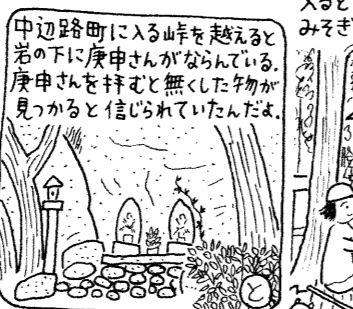 中辺路町に入る峠を越えると
岩の下に庚申さんがならんでいる。
庚申さんを拝むと無くした物が
見つかると信じられていたんだよ.
と
入ると
みそぎ